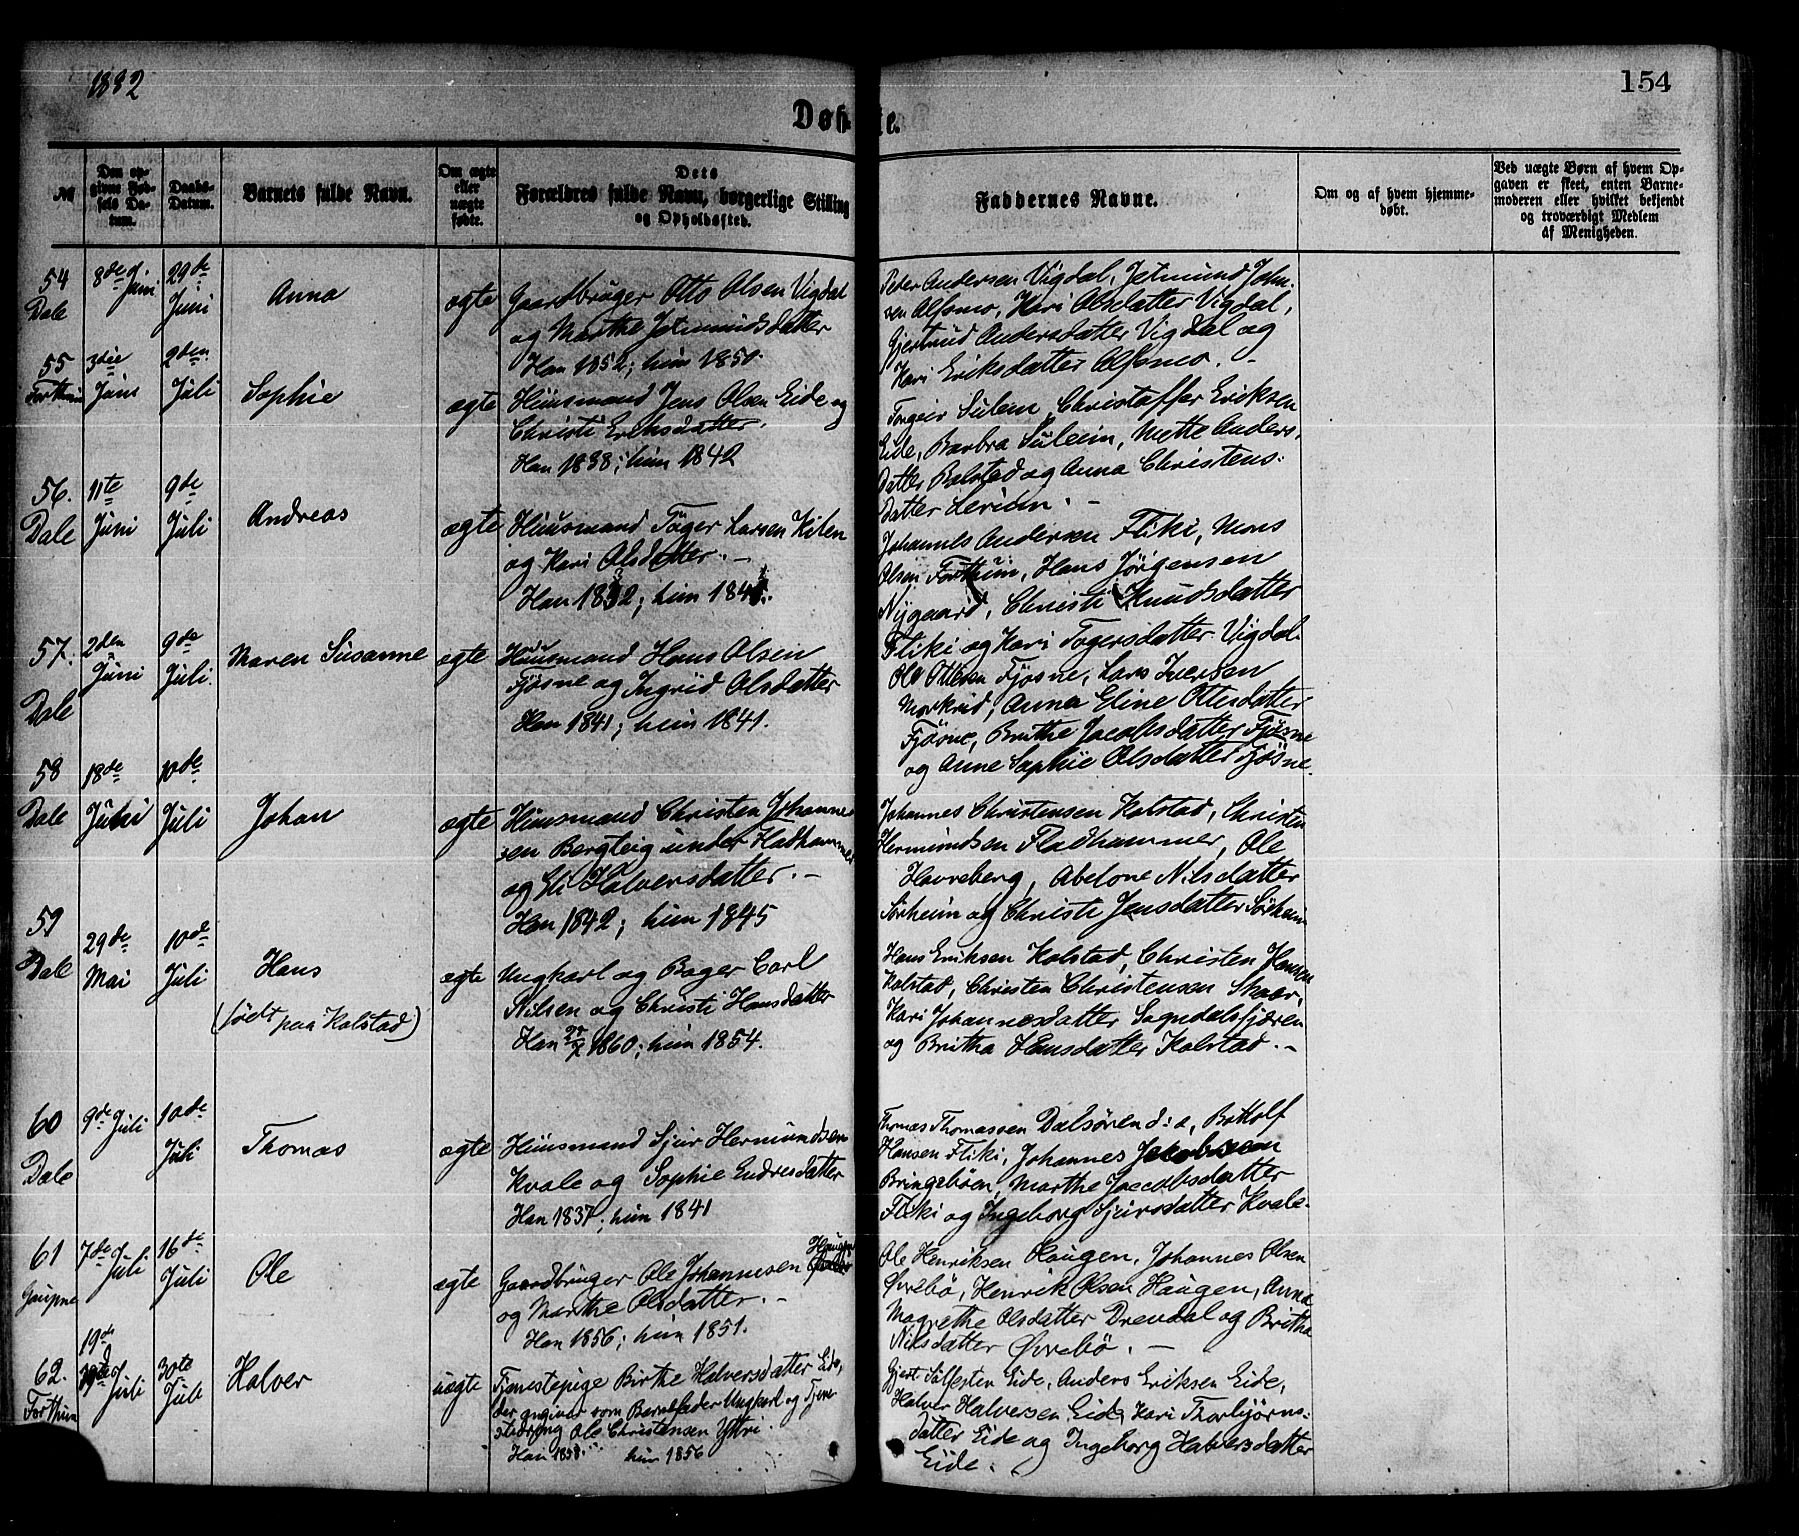 1882
154
Døbte.
№
Den opgivne Fødsels Datum.
Daabs-Datum.
Barnets fulde Navn.
Om ægte eller uægte født.
Dets Forældres fulde Navn, borgerlige Stilling og Opholdssted.
Faddernes Navne.
Om og af hvem hjemmedøbt.
Ved uægte Børn af hvem Opgaven er skeet, enten Barnemoderen eller hvilket bekjendt og troværdigt Medlem af Menigheden.
54 Dale
8de Juni
29de Juni
Anna
ægte
Gaardbruger Otto Olsen Vigdal
og Marthe Jetmundsdatter
Han 1852; hun 1850.
Peder Andersen Vigdal, Jetmund Johan-
sen Alsmo, Kari Olsdatter Vigdal,
Gjertrud Andersdatter Vigdal og
Kari Eriksdatter Alsmo. -
55 Forthun
3die Juni
2den Juli
Sophie
ægte
Huusmand Jens Olsen Eide og
Christi Eriksdatter.
Han 1838; hun 1842
Torgeir Sulem, Christoffer Eriksen
Eide, Barbra Suleim, Mette Anders-
datter Bolstad og Anna Christens-
datter Lerum. -
56. Dale
11te Juni
9de Juli
Andreas
ægte
Huusmand Tøger Larsen Kilen
og Kari Olsdatter. -
Han 1832; hun 184
Johannes Andersen Fliki, Mons
Olsen Forthun, Hans Jørgensen
Nygaard, Christi Knudsdatter
Fliki og Kari Tøgersdatter Vigdal.
57. Dale
2den Juni
9de Juli.
Maren Susanne
ægte
Huusmand Hans Olsen
Fjøsne og Ingrid Olsdatter
Han 1841; hun 1841.
Ole Ottesen Fjøsne, Lars Iversen
Morkrid, Anna Eline Ottesdatter
Fjøsne, Brithe Jacobsdatter Fjøsne
og Anne Sophie Olsdatter Fjøsne.
58 Dale
18de Juni
10de Juli
Johan
ægte
Huusmand Christen Johannes-
sen Bergteig under Fladhammer
og Eli Halversdatter. -
Han 1842; hun 1845
Johannes Christensen Kolstad, Christen
Hermundsen Fladhammer, Ole
Havreberg, Abelone Nilsdatter
Sørheim og Christi Jensdatter Sørheim
59 Dale
29de Mai
10de Juli
Hans
(født paa Kolstad)
ægte
Ungkarl og Bager Carl
Nilsen og Christi Hansdatter
Han 1860; hun 1854.
Hans Eriksen Kolstad, Christen Hansen
Kolstad, Christen Christensen Skaar,
Kari Johannesdatter Sogndalsfjæren
og Britha Hansdatter Kolstad. -
60 Dale
9de Juli
10de Juli
Thomas
ægte
Huusmand Sjur Hermundsen
Kvale og Sophie Endresdatter
Han 1837; hun 1841
Thomas Thomassen Dalsøren d: a, Bottolf
Hansen Fliki, Johannes Jakobsen
Bringebøen, Marthe Jacobsdatter
Fliki og Ingeborg Sjursdatter Kvale.
61 Gaupne
7de Juli
16de Juli
Ole
ægte
Gaardbruger Ole Johannesen Haugen
og Marthe Olsdatter. -
Han 1856; hun 1851.
Ole Henriksen Haugen, Johannes Olsen
Øvrebø, Henrik Olsen Haugen, Anna
Magrethe Olsdatter Drevdal og Britha
Nilsdatter Øvrebø. -
62. Forthun
19de Juli
30te Juli
Halver
uægte
Tjenestepige Birthe Halversdatter Eide,
der angiver som Barnefader Ungkarl og Tjene-
stedreng Ole Christensen Yttri.
Han 1858. hun 1856
Gjert Sølfesten Eide, Anders Eriksen Eide,
Halver Halversen Eide, Kari Thorbjørns-
datter Eide og Ingeborg Halversdatter
Eide.